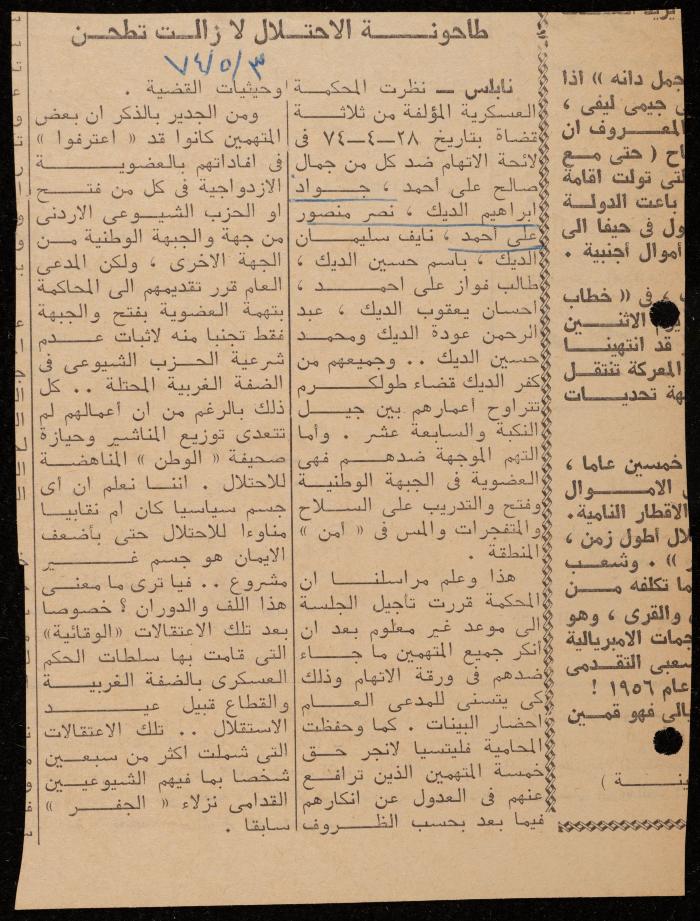 طاحونة الاحتلال لا زالت تطحن
٧٤/٥/٣
نابلس ــ نظرت المحكمة
العسكرية المؤلفة من ثلاثة
قضاة بتاريخ ٢٨ــ٤ــ٧٤ فى
لائحة الاتهام ضد كل من جمال
صالح على أحمد ، جواد
ابراهيم الديك ، نصر منصور
على أحمد ، نايف سليمان
الديك ، باسم حسين الديك ،
طالب فواز على احمد ،
احسان يعقوب الديك ، عبد
الرحمن عودة الديك ومحمد
حسين الديك .. وجميعهم من
كفر الديك قضاء طولكرم
تتراوح أعمارهم بين جيل
النكبة والسابعة عشر . وأما
التهم الموجهة ضدهم فهى
العضوية فى الجبهة الوطنية
وفتح والتدريب على السلاح
والمتفجرات والمس فى « أمن »
المنطقة .
هذا وعلم مراسلنا ان
المحكمة قررت تأجيل الجلسة
الى موعد غير معلوم بعد ان
أنكر جميع المتهمين ما جاء
ضدهم فى ورقة الاتهام وذلك
كى يتسنى للمدعى العام
احضار البينات . كما وحفظت
المحامية فليتسيا لانجر حق
خمسة المتهمين الذين ترافع
عنهم فى العدول عن انكارهم
فيما بعد بحسب الظروف
وحيثيات القضية .
ومن الجدير بالذكر ان بعض
المتهمين كانوا قد « اعترفوا »
فى افاداتهم بالعضوية
الازدواجية فى كل من فتح
او الحزب الشيوعى الاردنى
من جهة والجبهة الوطنية من
الجهة الاخرى ، ولكن المدعى
العام قرر تقديمهم الى المحاكمة
بتهمة العضوية بفتح والجبهة
فقط تجنبا منه لاثبات عدم
شرعية الحزب الشيوعى فى
الضفة الغربية المحتلة .. كل
ذلك بالرغم من ان أعمالهم لم
تتعدى توزيع المناشير وحيازة
صحيفة « الوطن » المناهضة
للاحتلال . اننا نعلم ان أى
جسم سياسيا كان ام نقابيا
مناوءا للاحتلال حتى بأضعف
الايمان هو جسم غير
مشروع .. فيا ترى ما معنى
هذا اللف والدوران ؟ خصوصا
بعد تلك الاعتقالات «الوقائية»
التى قامت بها سلطات الحكم
العسكرى بالضفة الغربية
والقطاع قبيل عيد
الاستقلال .. تلك الاعتقالات
التى شملت اكثر من سبعين
شخصا بما فيهم الشيوعيين
القدامى نزلاء « الجفر »
سابقا .
جمل دانه » اذا
جيمى ليفى ،
المعروف ان
( حتى مع
تولت اقامة
باعت الدولة
فى حيفا الى
أموال أجنبية .
فى « خطاب
الاثنين
قد انتهينا
المعركة تنتقل
تحديات
خمسين عاما ،
الاموال
الاقطار النامية .
أطول زمن ،
» . وشعب
تكلفه من
والقرى ، وهو
الامبريالية
التقدمى
عام ١٩٥٦ !
فهو قمين